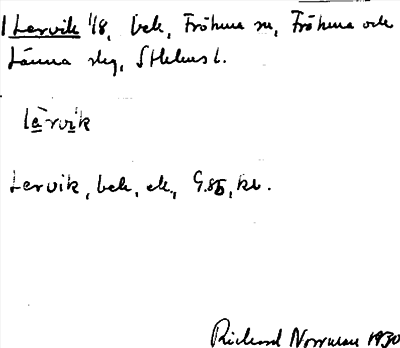 1 Lervik 1/8, bek, Fröhuna sn, Fröhuna och
Länna slg, Sthlms l.
lä̀rvik
Lervik, bek, ek, G.85, kb.
Richard Norrman 1930